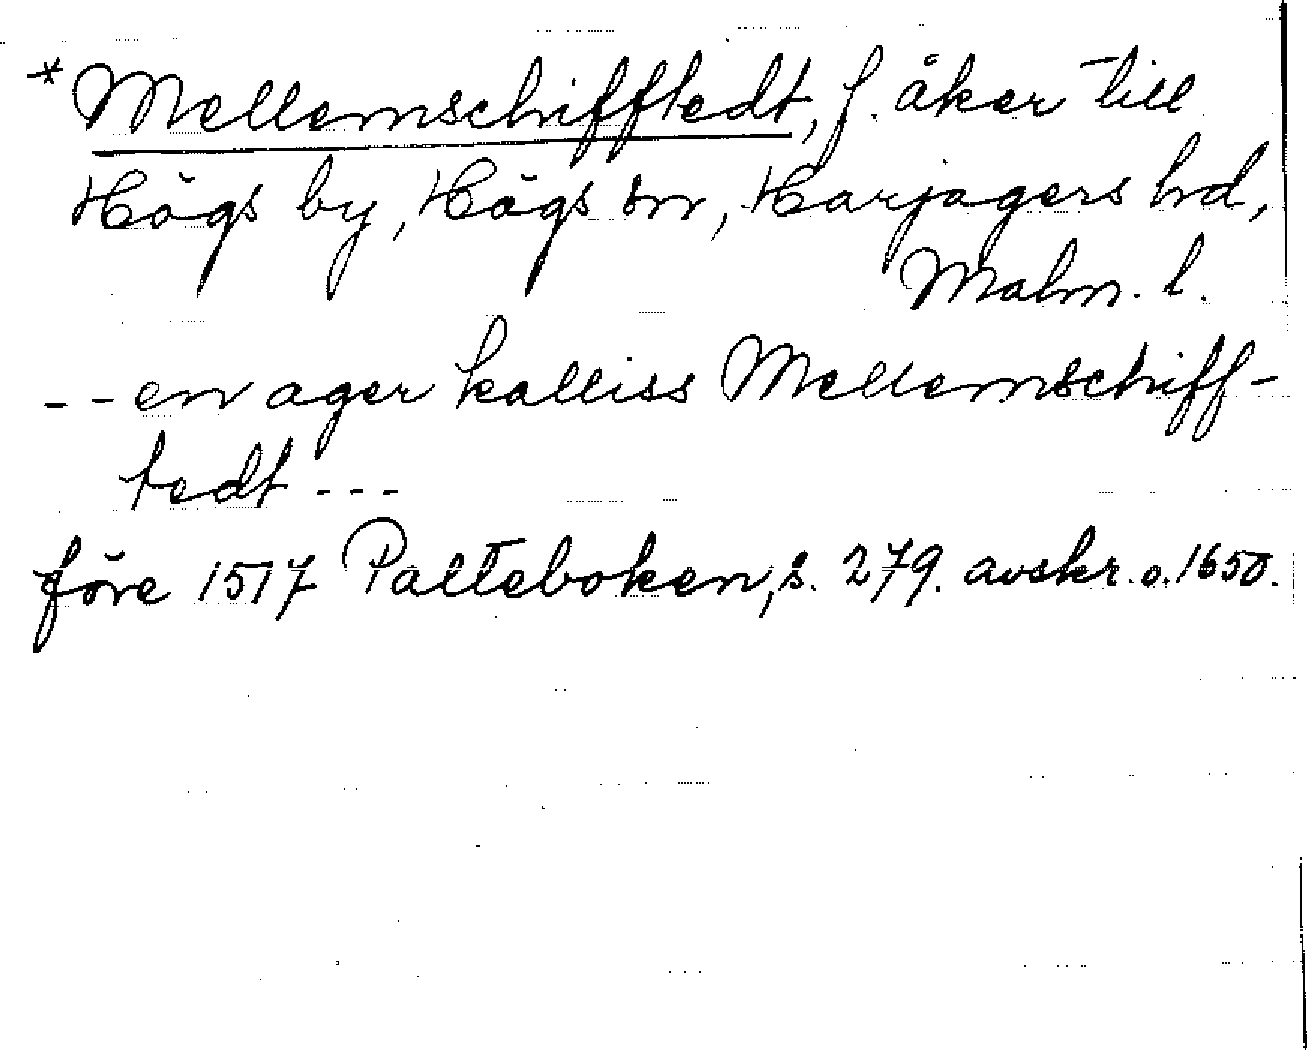 * Mellemschifftedt, f. åker till
Högs by, Högs sn, Harjagers hd,
Malm. l.
-- en ager kalliss Mellemschiff-
tedt ---
före 1517 Palteboken, s. 279. avskr. o. 1650.